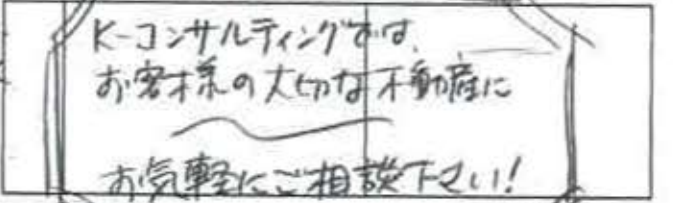 K-コンサルティングでは、
お客様の大切な不動産に
お気軽にご相談下さい!